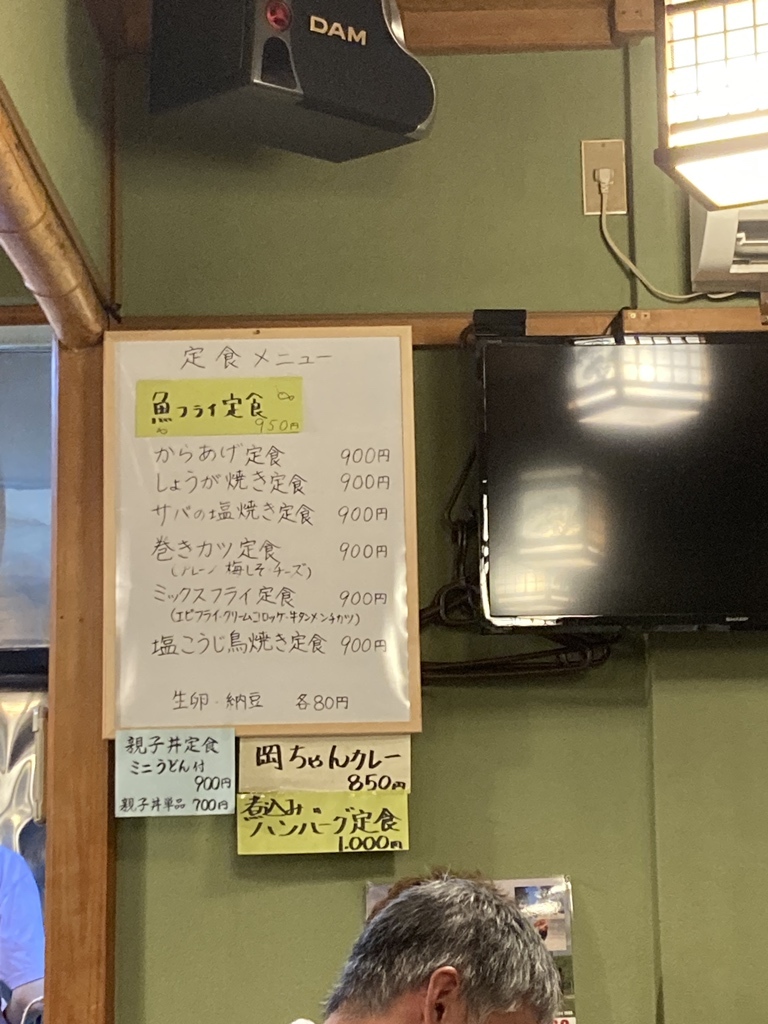 DAM
定食メニュー
魚フライ定食
950円
からあげ定食 900円
しょうが焼き定食 900円
サバの塩焼き定食 900円
巻きカツ定食 900円
(プレーン 梅しそ・チーズ)
ミックスフライ定食 900円
(エビフライ・クリームコロッケ・牛タンメンチカツ)
塩こうじ鳥焼き定食 900円
生卵・納豆 各80円
親子丼定食
ミニうどん付
900円
親子丼単品 700円
岡ちゃんカレー
850円
煮込み
ハンバーグ定食
1,000円
SHARP